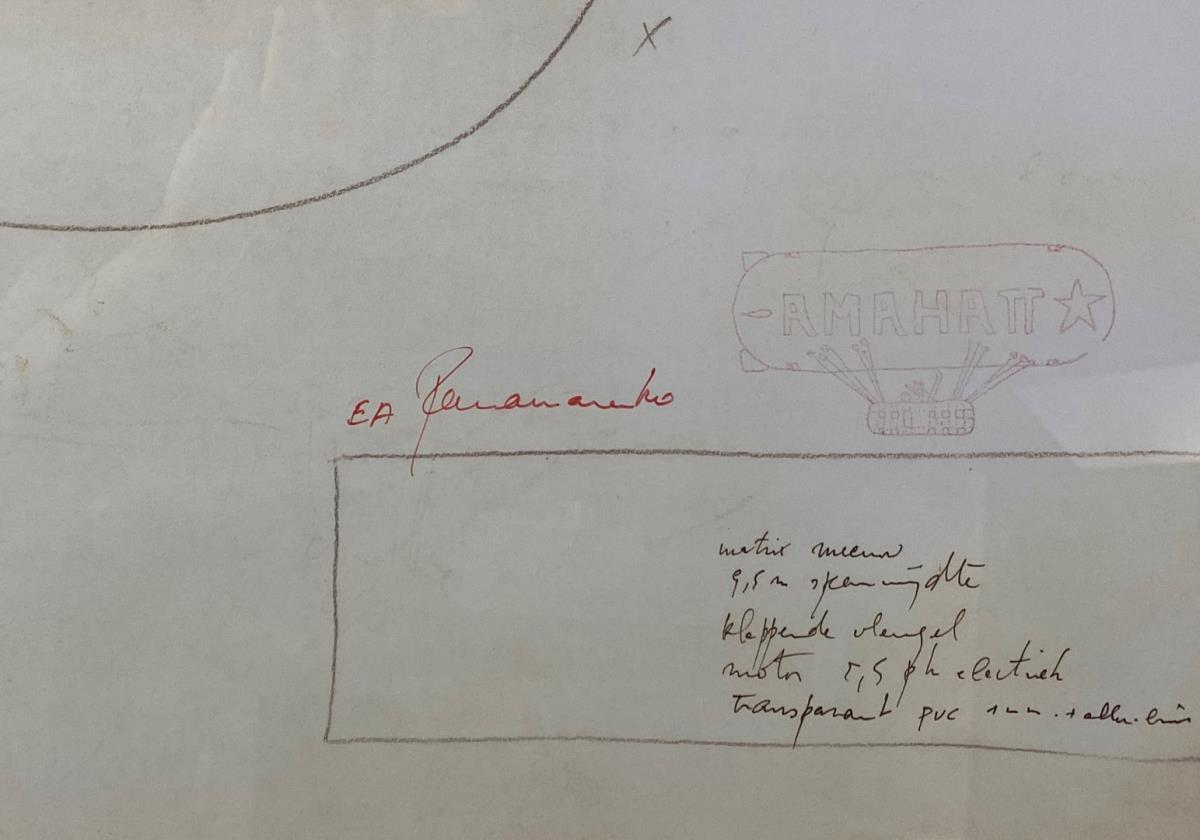 X
AMAHATT
EA Panamarenko
matrix meeuw
9,5 m spanwijdte
klappende vleugel
motor 5,5 ph electriek
transparant pvc 1 mm. +